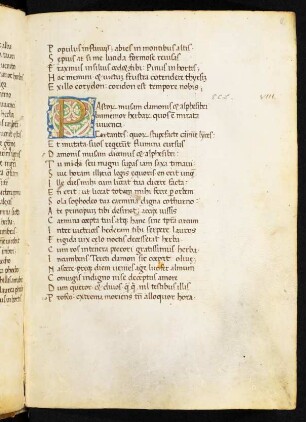 Populus in fluuiis; abies in montibus altis.
Sepius at si me licida formose reuisas
Fraxinus in siluis cedet tibi. Pinus in hortis.
Hec memini & uictum frustra contendere thyrsim.
Ex illo corydon corydon est tempore nobis;
Pastorum musam damonis & alphesibei
Inmemor herbarum quos est mirata
iuuenca
Certantes quorum stupefacte carmine lynces;
Et mutata suos requierunt flumina cursus
Damonis musam dicemus & alphesibei.
Tu mihi seu magni superas iam saxa timaui
Siue horam illirici legis equoris en erit umquam
Ille dies mihi cum liceat tua dicere facta.
En erit. ut liceat totum mihi ferre per orbem
Sola sophocleo tua carmina digna cothurno.
A te principium tibi desinet; accipe iussis
Carmina cepta tuis atque hanc sine tempora circum
Inter uictrices hederam tibi serpere lauros
Frigida uix celo noctis decesserat herba
Cum ros in tenera pecori gratissimus herba
Incumbens tereti damon sic cepit oliue;
Nascere preque diem ueniens age lucifer almum
Coniugis indigno nise deceptus amore
Dum queror & diuos quamquam nil testibus illis
Profeci. extrema moriens tamen alloquor hora.